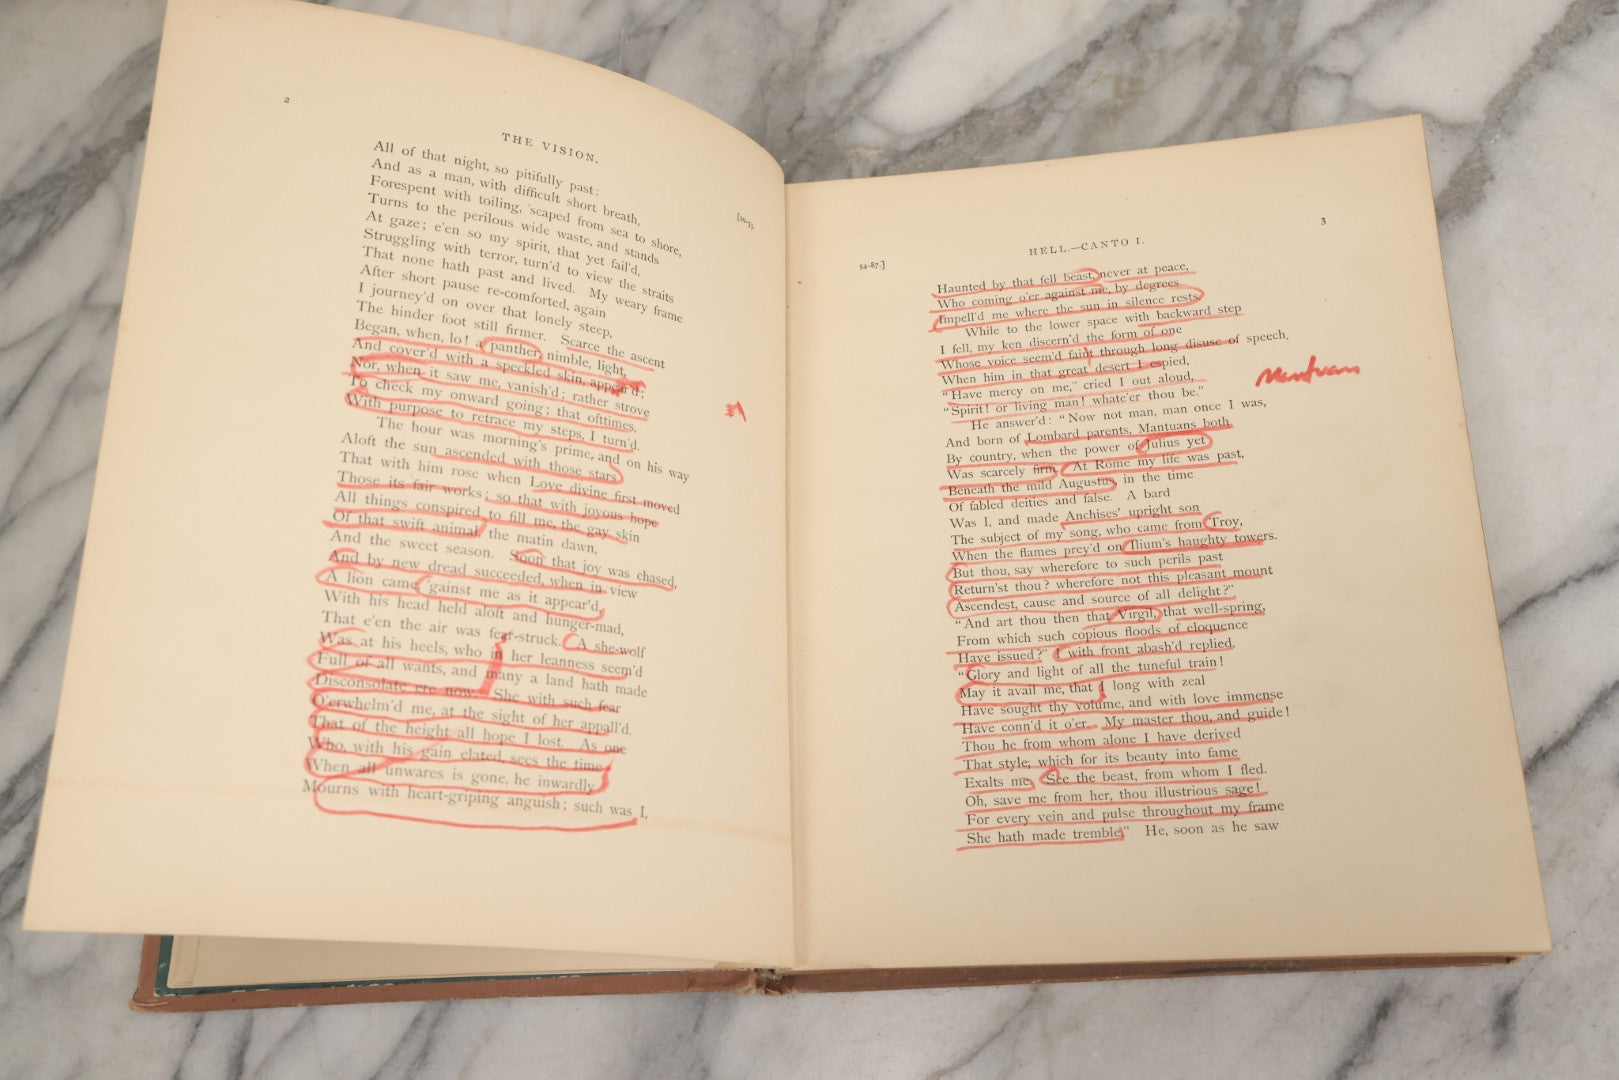 2
THE VISION.
All of that night, so pitifully past:
And as a man, with difficult short breath,
Forespent with toiling, 'scaped from sea to shore,
Turns to the perilous wide waste, and stands
At gaze; e'en so my spirit, that yet fail'd,
Struggling with terror, turn'd to view the straits
That none hath past and lived. My weary frame
After short pause re-comforted, again
I journey'd on over that lonely steep,
The hinder foot still firmer. Scarce the ascent
Began, when, lo! a panther, nimble, light,
And cover'd with a speckled skin, appear'd;
Nor, when it saw me, vanish'd; rather strove
To check my onward going; that ofttimes,
With purpose to retrace my steps, I turn'd.
The hour was morning's prime, and on his way
Aloft the sun ascended with those stars
That with him rose when Love divine first moved
Those its fair works; so that with joyous hope
All things conspired to fill me, the gay skin
Of that swift animal, the matin dawn,
And the sweet season. Soon that joy was chased,
And by new dread succeeded, when in view
A lion came, 'gainst me as it appear'd,
With his head held aloft and hunger-mad,
That e'en the air was fear-struck. A she-wolf
Was at his heels, who in her leanness seem'd
Full of all wants, and many a land hath made
Disconsolate ere now. She with such fear
O'erwhelm'd me, at the sight of her appall'd,
That of the height all hope I lost. As one
Who, with his gain elated, sees the time
When all unwares is gone, he inwardly
Mourns with heart-griping anguish; such was I,
3
HELL.—CANTO I.
54-87.]
Haunted by that fell beast, never at peace,
Who coming o'er against me, by degrees
Impell'd me where the sun in silence rests.
While to the lower space with backward step
I fell, my ken discern'd the form of one
Whose voice seem'd faint through long disuse of speech,
When him in that great desert I espied,
"Have mercy on me," cried I out aloud,
"Spirit! or living man! whate'er thou be."
Mantuan
He answer'd: "Now not man, man once I was,
And born of Lombard parents, Mantuans both
By country, when the power of Julius yet
Was scarcely firm. At Rome my life was past,
Beneath the mild Augustus, in the time
Of fabled deities and false. A bard
Was I, and made Anchises' upright son
The subject of my song, who came from Troy,
When the flames prey'd on Ilium's haughty towers.
But thou, say wherefore to such perils past
Return'st thou? wherefore not this pleasant mount
Ascendest, cause and source of all delight?"
"And art thou then that Virgil, that well-spring,
From which such copious floods of eloquence
Have issued?" I with front abash'd replied.
"Glory and light of all the tuneful train!
May it avail me, that I long with zeal
Have sought thy volume, and with love immense
Have conn'd it o'er. My master thou, and guide!
Thou he from whom alone I have derived
That style, which for its beauty into fame
Exalts me. See the beast, from whom I fled.
Oh, save me from her, thou illustrious sage!
For every vein and pulse throughout my frame
She hath made tremble." He, soon as he saw